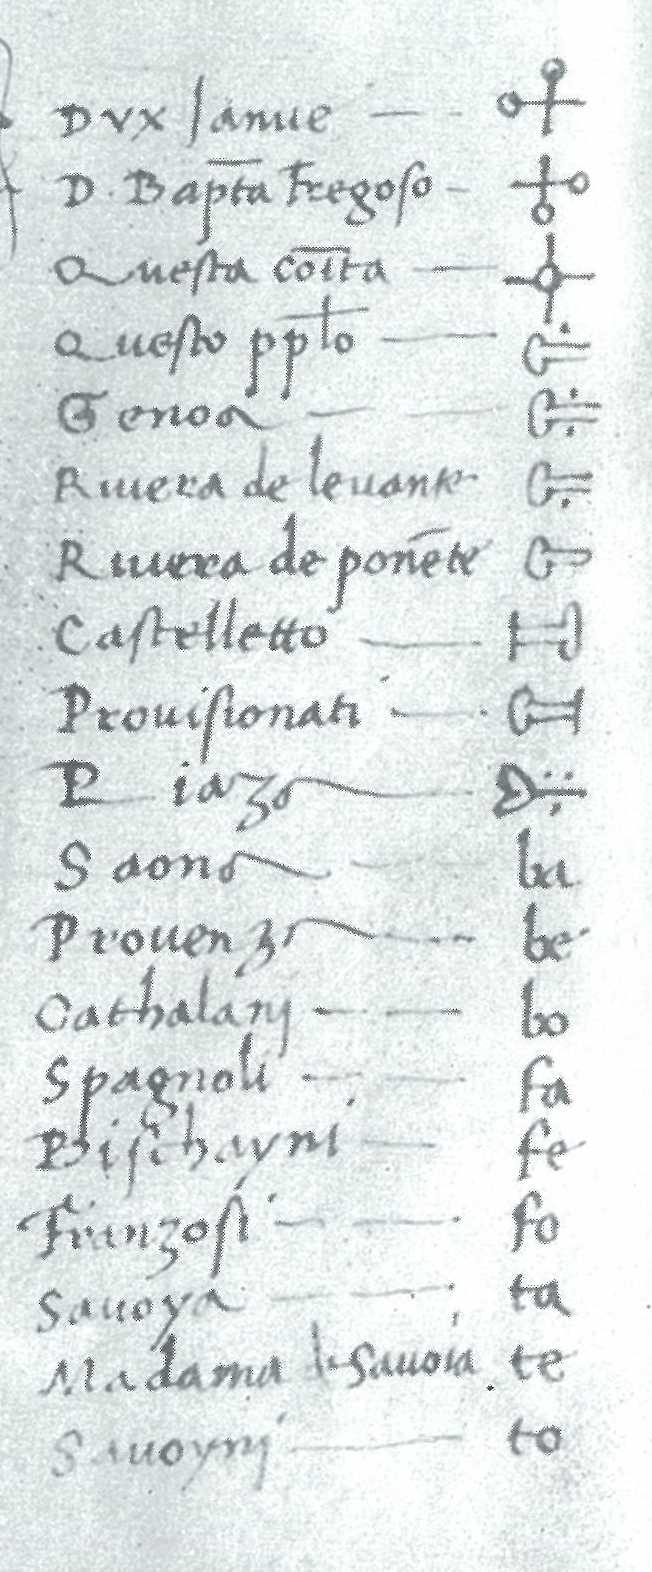 Dux Ianue
D. Bap̄ta Fregoso
Questa coīta
Questo pp̄lo
Genoa
Riuiera de leuante
Riuiera de ponēte
Castelletto
Prouisionati
Piaza
Saona ba
Prouenza be
Cathalanj bo
Spagnoli fa
Bischayni fe
Franzosi fo
Sauoya ta
Madama de Sauoia te
Sauoynj to